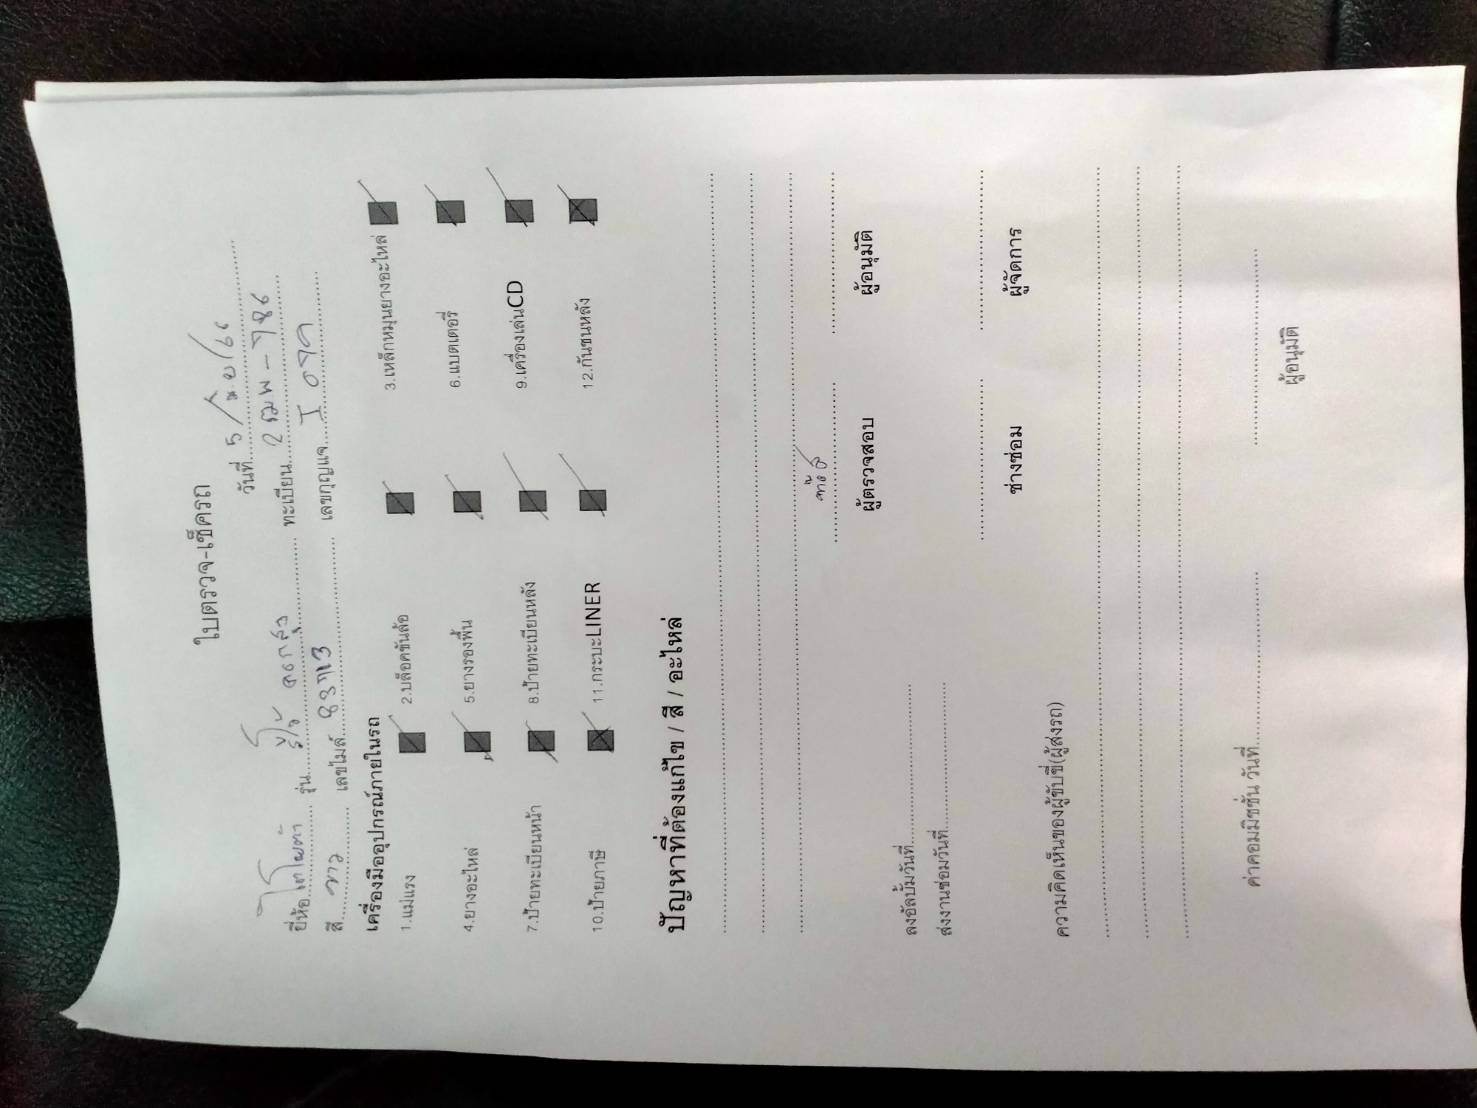 ใบตรวจ-เช็ครถ
วันที่ 5 / เม.ย / 66
ยี่ห้อ โตโยต้า รุ่น รีโว่ ทะเบียน 2ฒพ-786
สี ขาว เลขไมล์ 83713 เลขกุญแจ
เครื่องมืออุปกรณ์ภายในรถ
1.แม่แรง 2.บล็อคขันล้อ 3.เหล็กหมุนยางอะไหล่
4.ยางอะไหล่ 5.ยางรองพื้น 6.แบตเตอรี่
7.ป้ายทะเบียนหน้า 8.ป้ายทะเบียนหลัง 9.เครื่องเล่นCD
10.ป้ายภาษี 11.กระบะLINER 12.กันชนหลัง
ปัญหาที่ต้องแก้ไข / สี / อะไหล่
ผู้ตรวจสอบ ผู้อนุมัติ
ลงอัลบั้มวันที่
ส่งงานซ่อมวันที่
ช่างซ่อม ผู้จัดการ
ความคิดเห็นของผู้ขับขี่(ผู้ส่งรถ)
ค่าคอมมิชชั่น วันที่
ผู้อนุมัติ